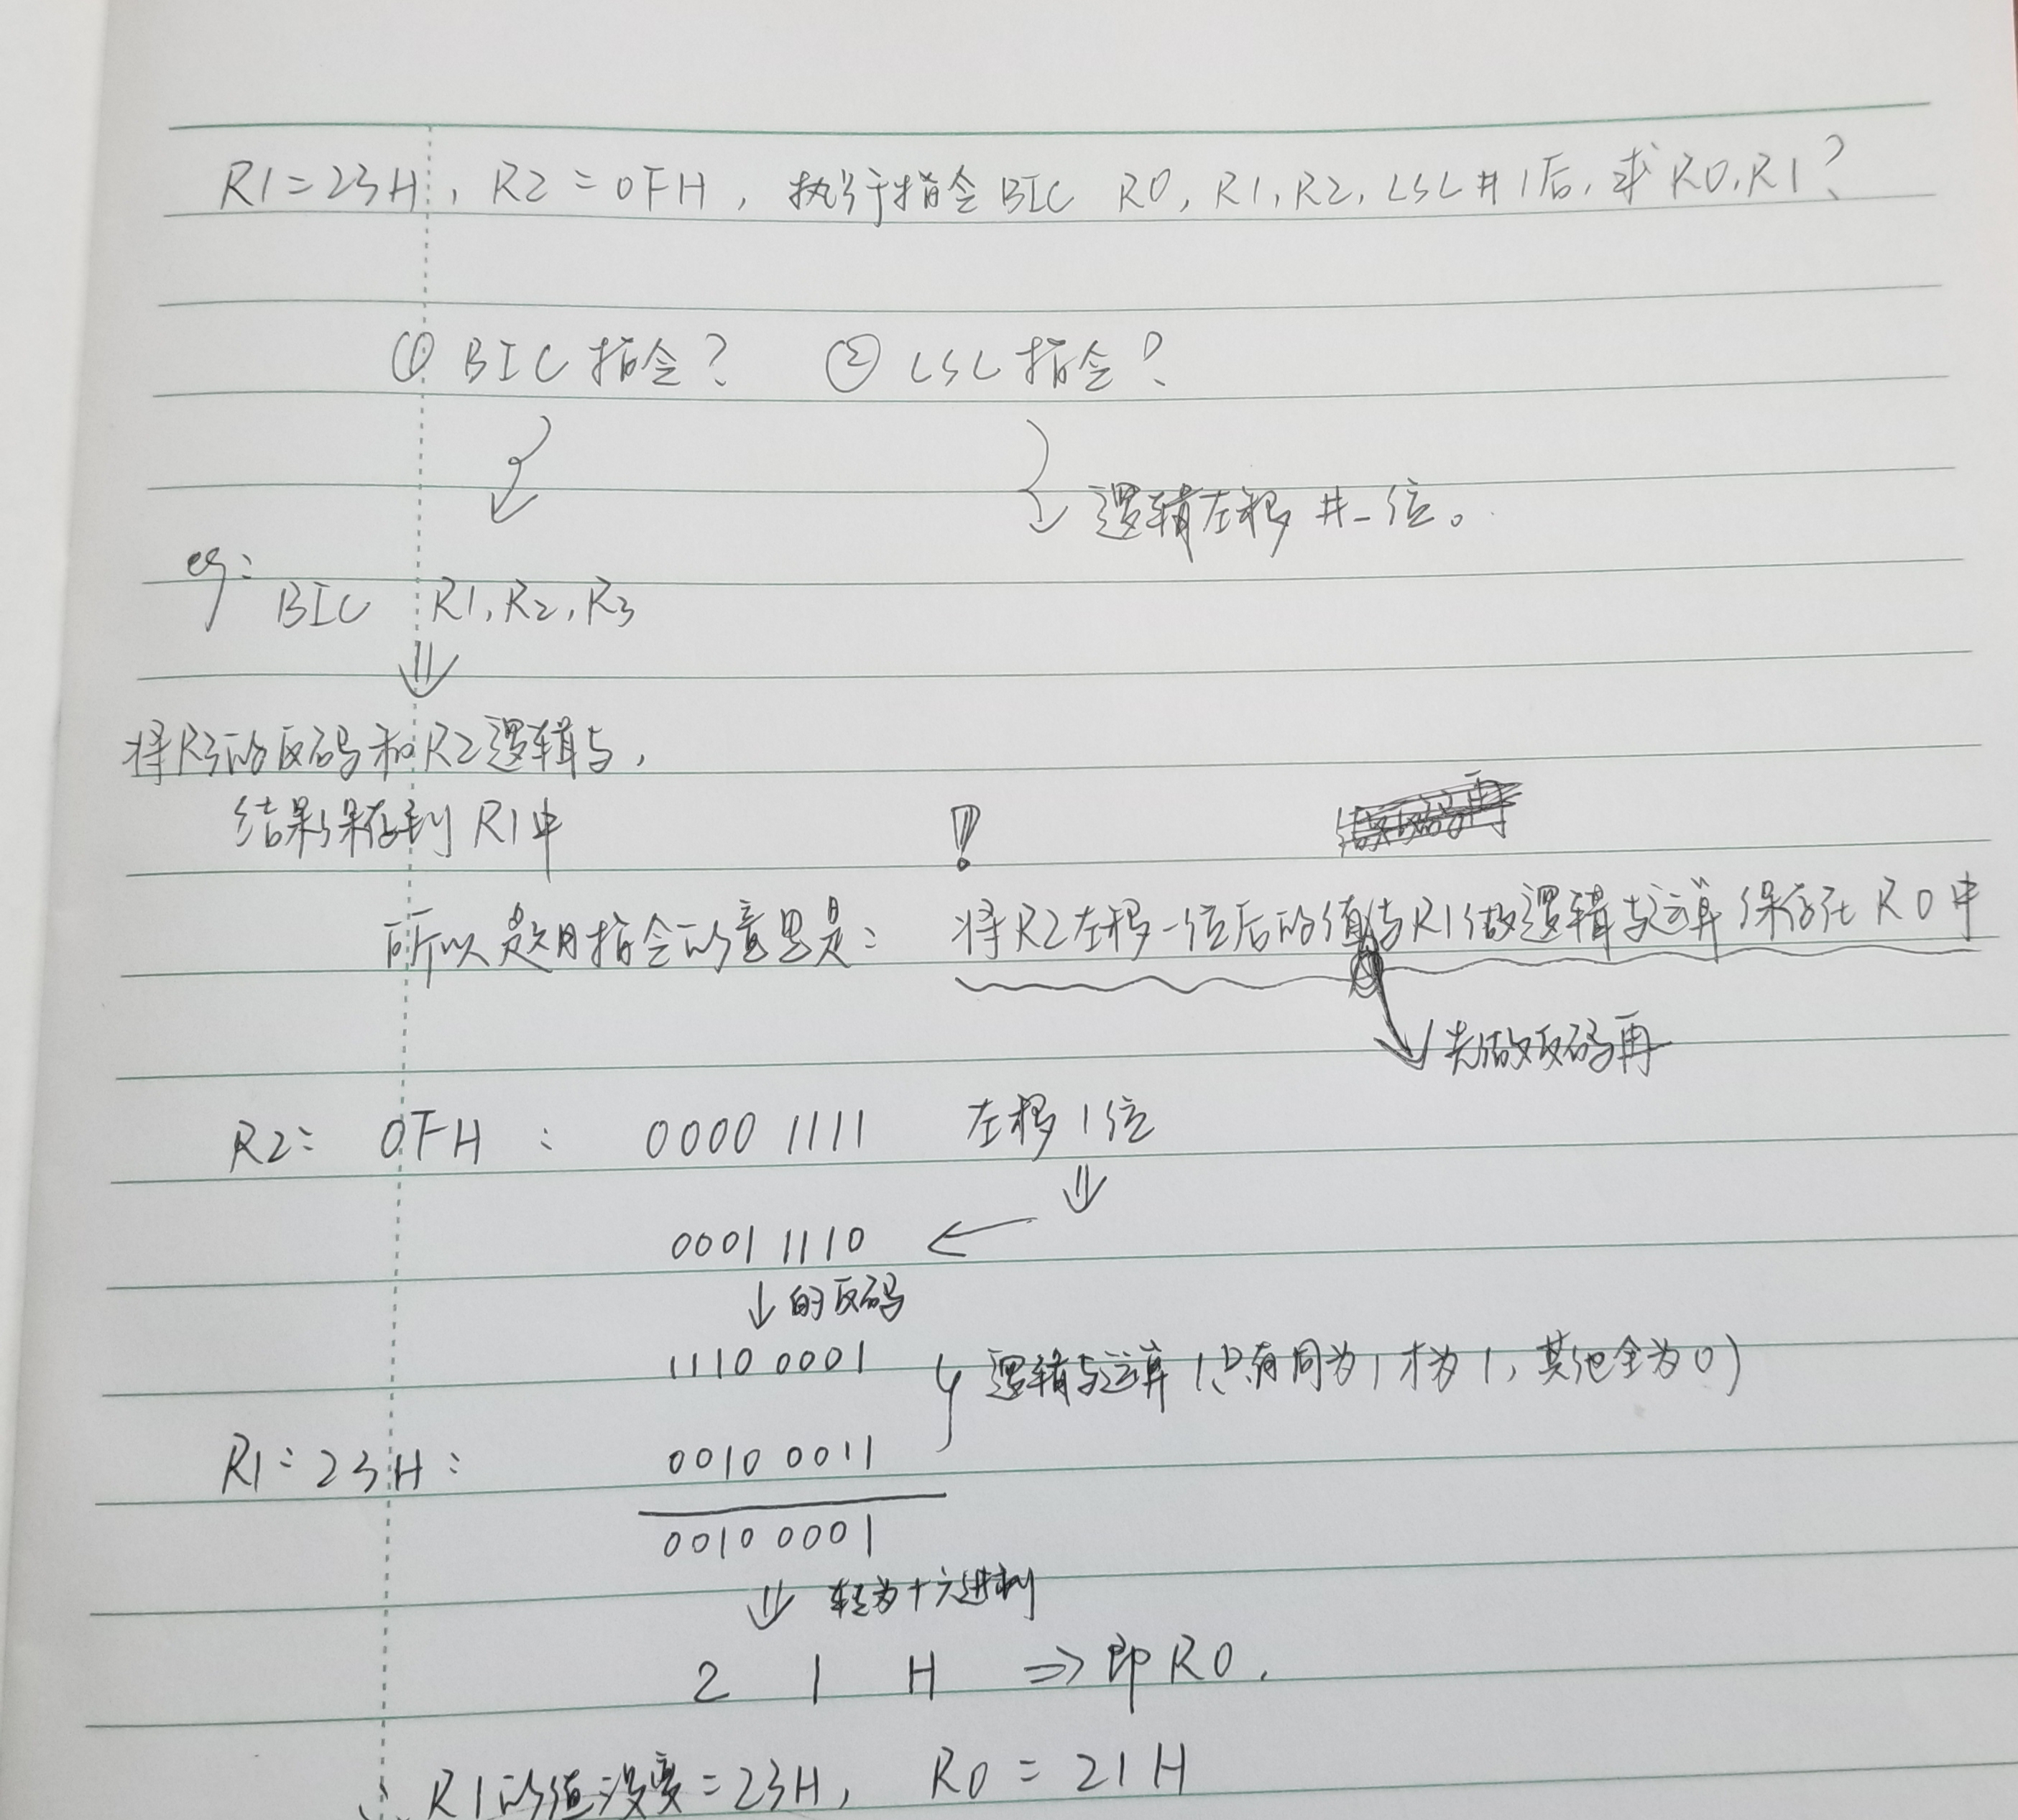 R1=23H, R2=0FH, 执行指令BIC R0, R1, R2, LSL#1后, 求R0, R1?
① BIC指令? ② LSL指令?
逻辑左移#一位。
eg:
BIC R1, R2, R3
将R3的反码和R2逻辑与,
结果保存到R1中
!
所以题目指令的意思是: 将R2左移一位后的值与R1做逻辑与运算保存在R0中
先做反码再
R2: 0FH : 0000 1111 左移1位
0001 1110
的反码
1110 0001 逻辑与运算(只有同为1才为1, 其他全为0)
R1: 23H: 0010 0011
0010 0001
转为十六进制
2 1 H ⇒即R0.
R1的值没变=23H, R0=21H